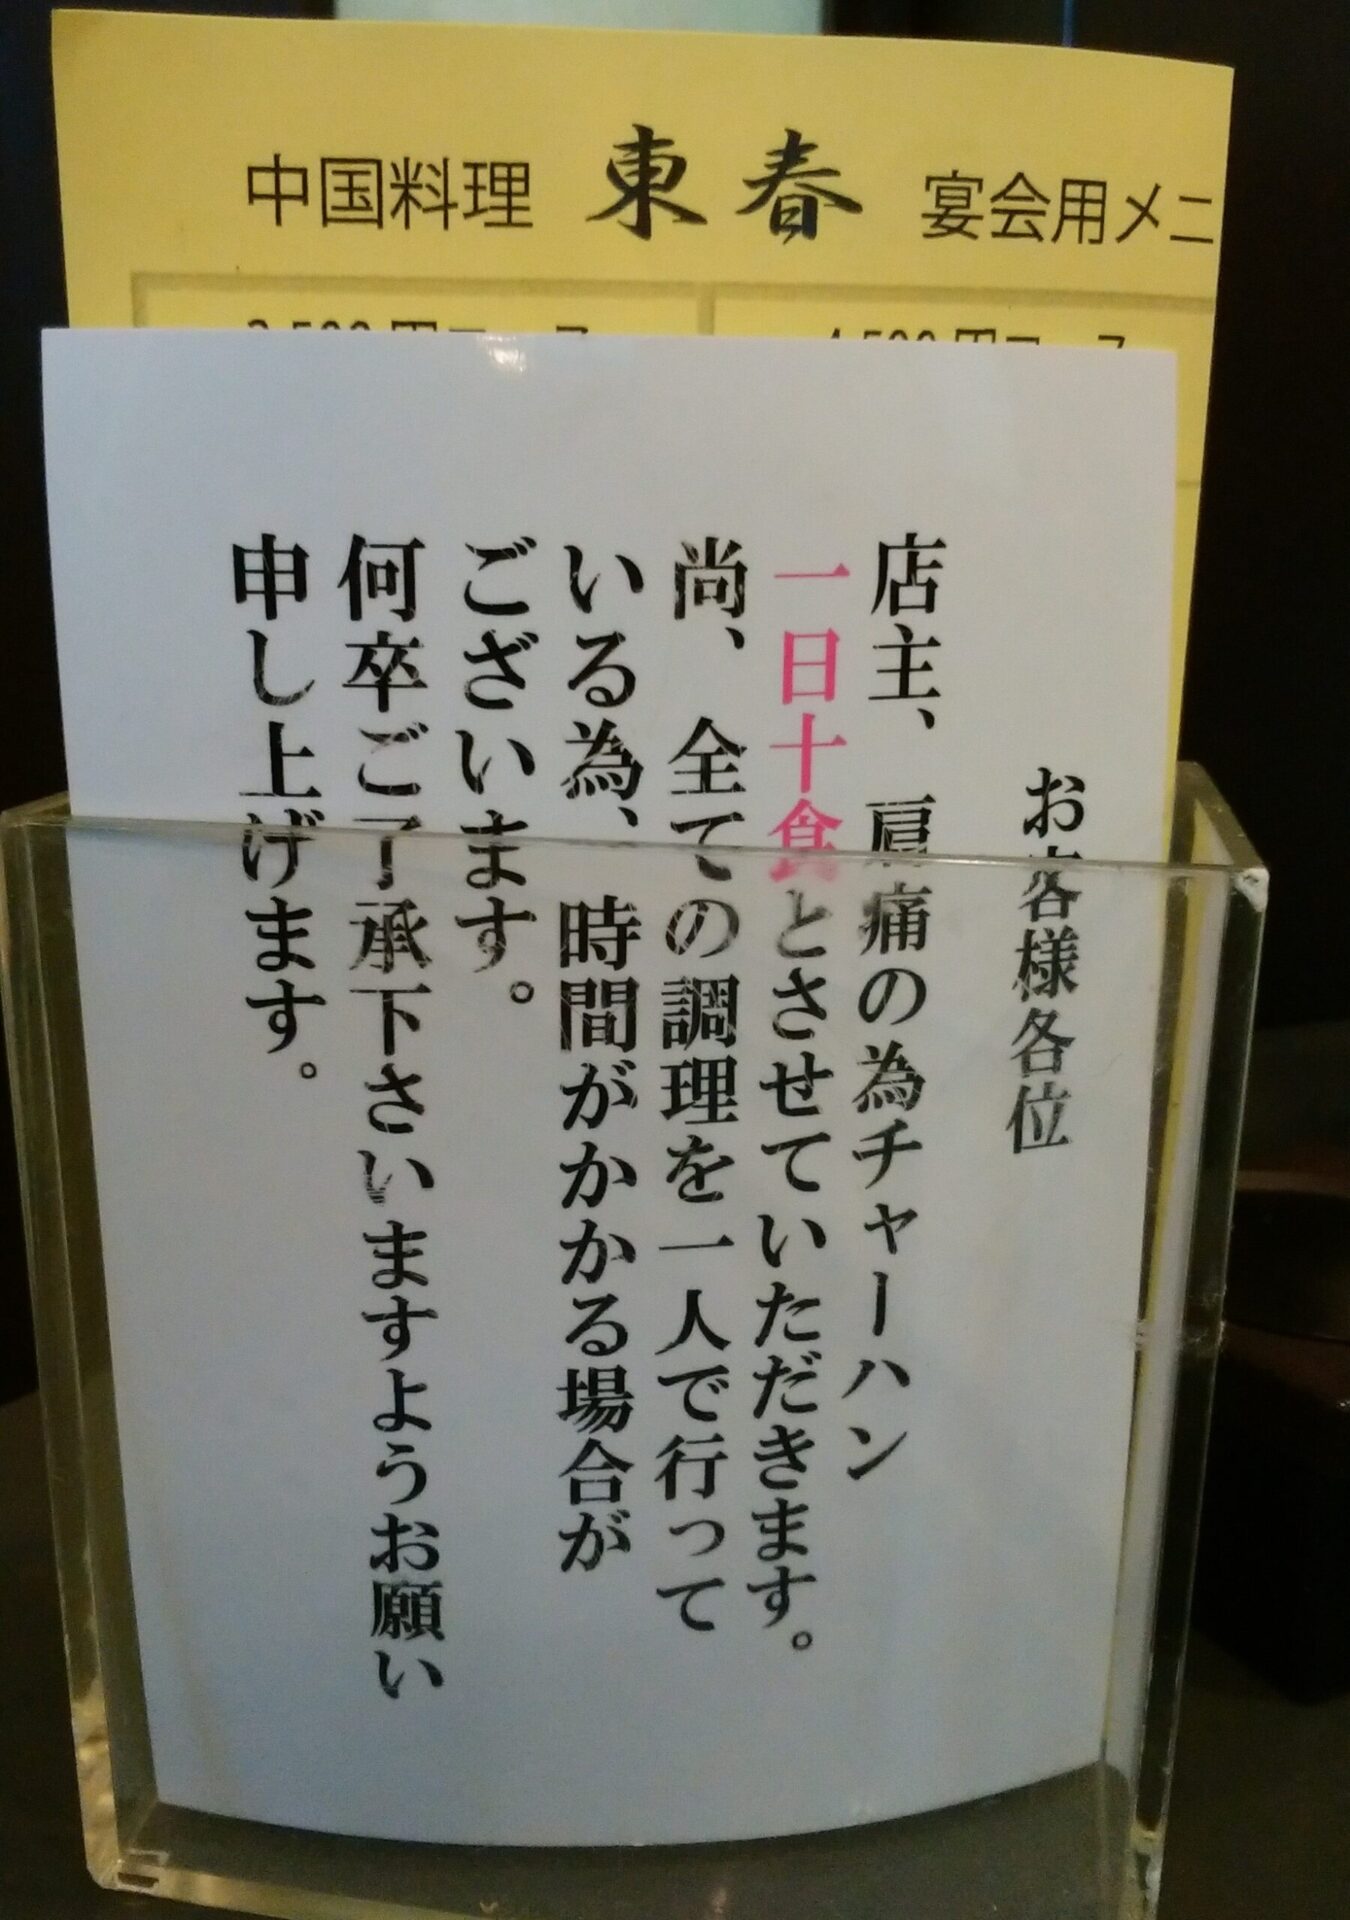 中国料理 東春 宴会用メニ
お客様各位
店主、肩痛の為チャーハン
一日十食とさせていただきます。
尚、全ての調理を一人で行って
いる為、時間がかかる場合が
ございます。
何卒ご了承下さいますようお願い
申し上げます。